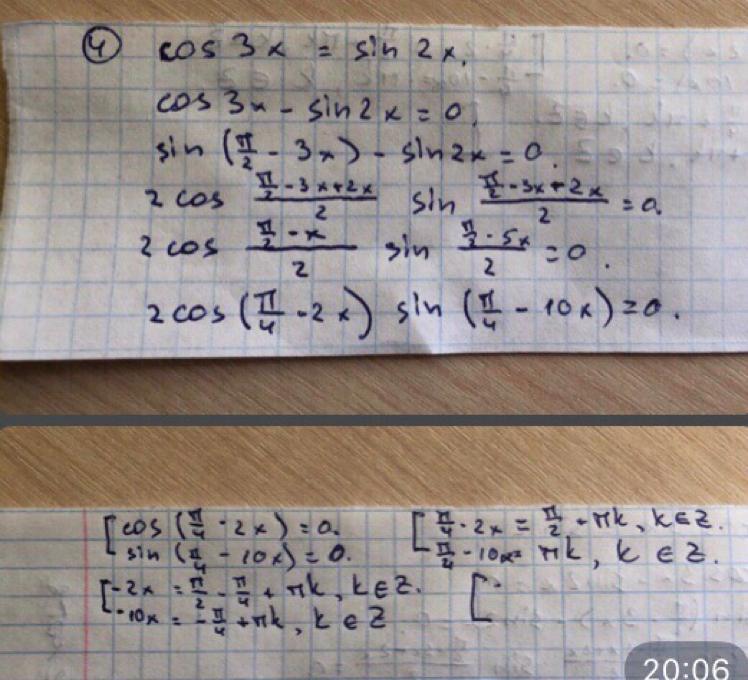 ④ cos 3x = sin 2x.
cos 3x - sin 2x = 0.
sin (π/2 - 3x) - sin 2x = 0.
2 cos (π/2 - 3x + 2x)/2 sin (π/2 - 3x + 2x)/2 = 0.
2 cos (π/2 - x)/2 sin (π/2 - 5x)/2 = 0.
2 cos (π/4 - 2x) sin (π/4 - 10x) = 0.
[ cos (π/4 - 2x) = 0. [ π/4 - 2x = π/2 + πk, k ∈ Z.
sin (π/4 - 10x) = 0. π/4 - 10x = πk, k ∈ Z.
[ -2x = π/2 - π/4 + πk, k ∈ Z. [ -
-10x = -π/4 + πk, k ∈ Z
20:06